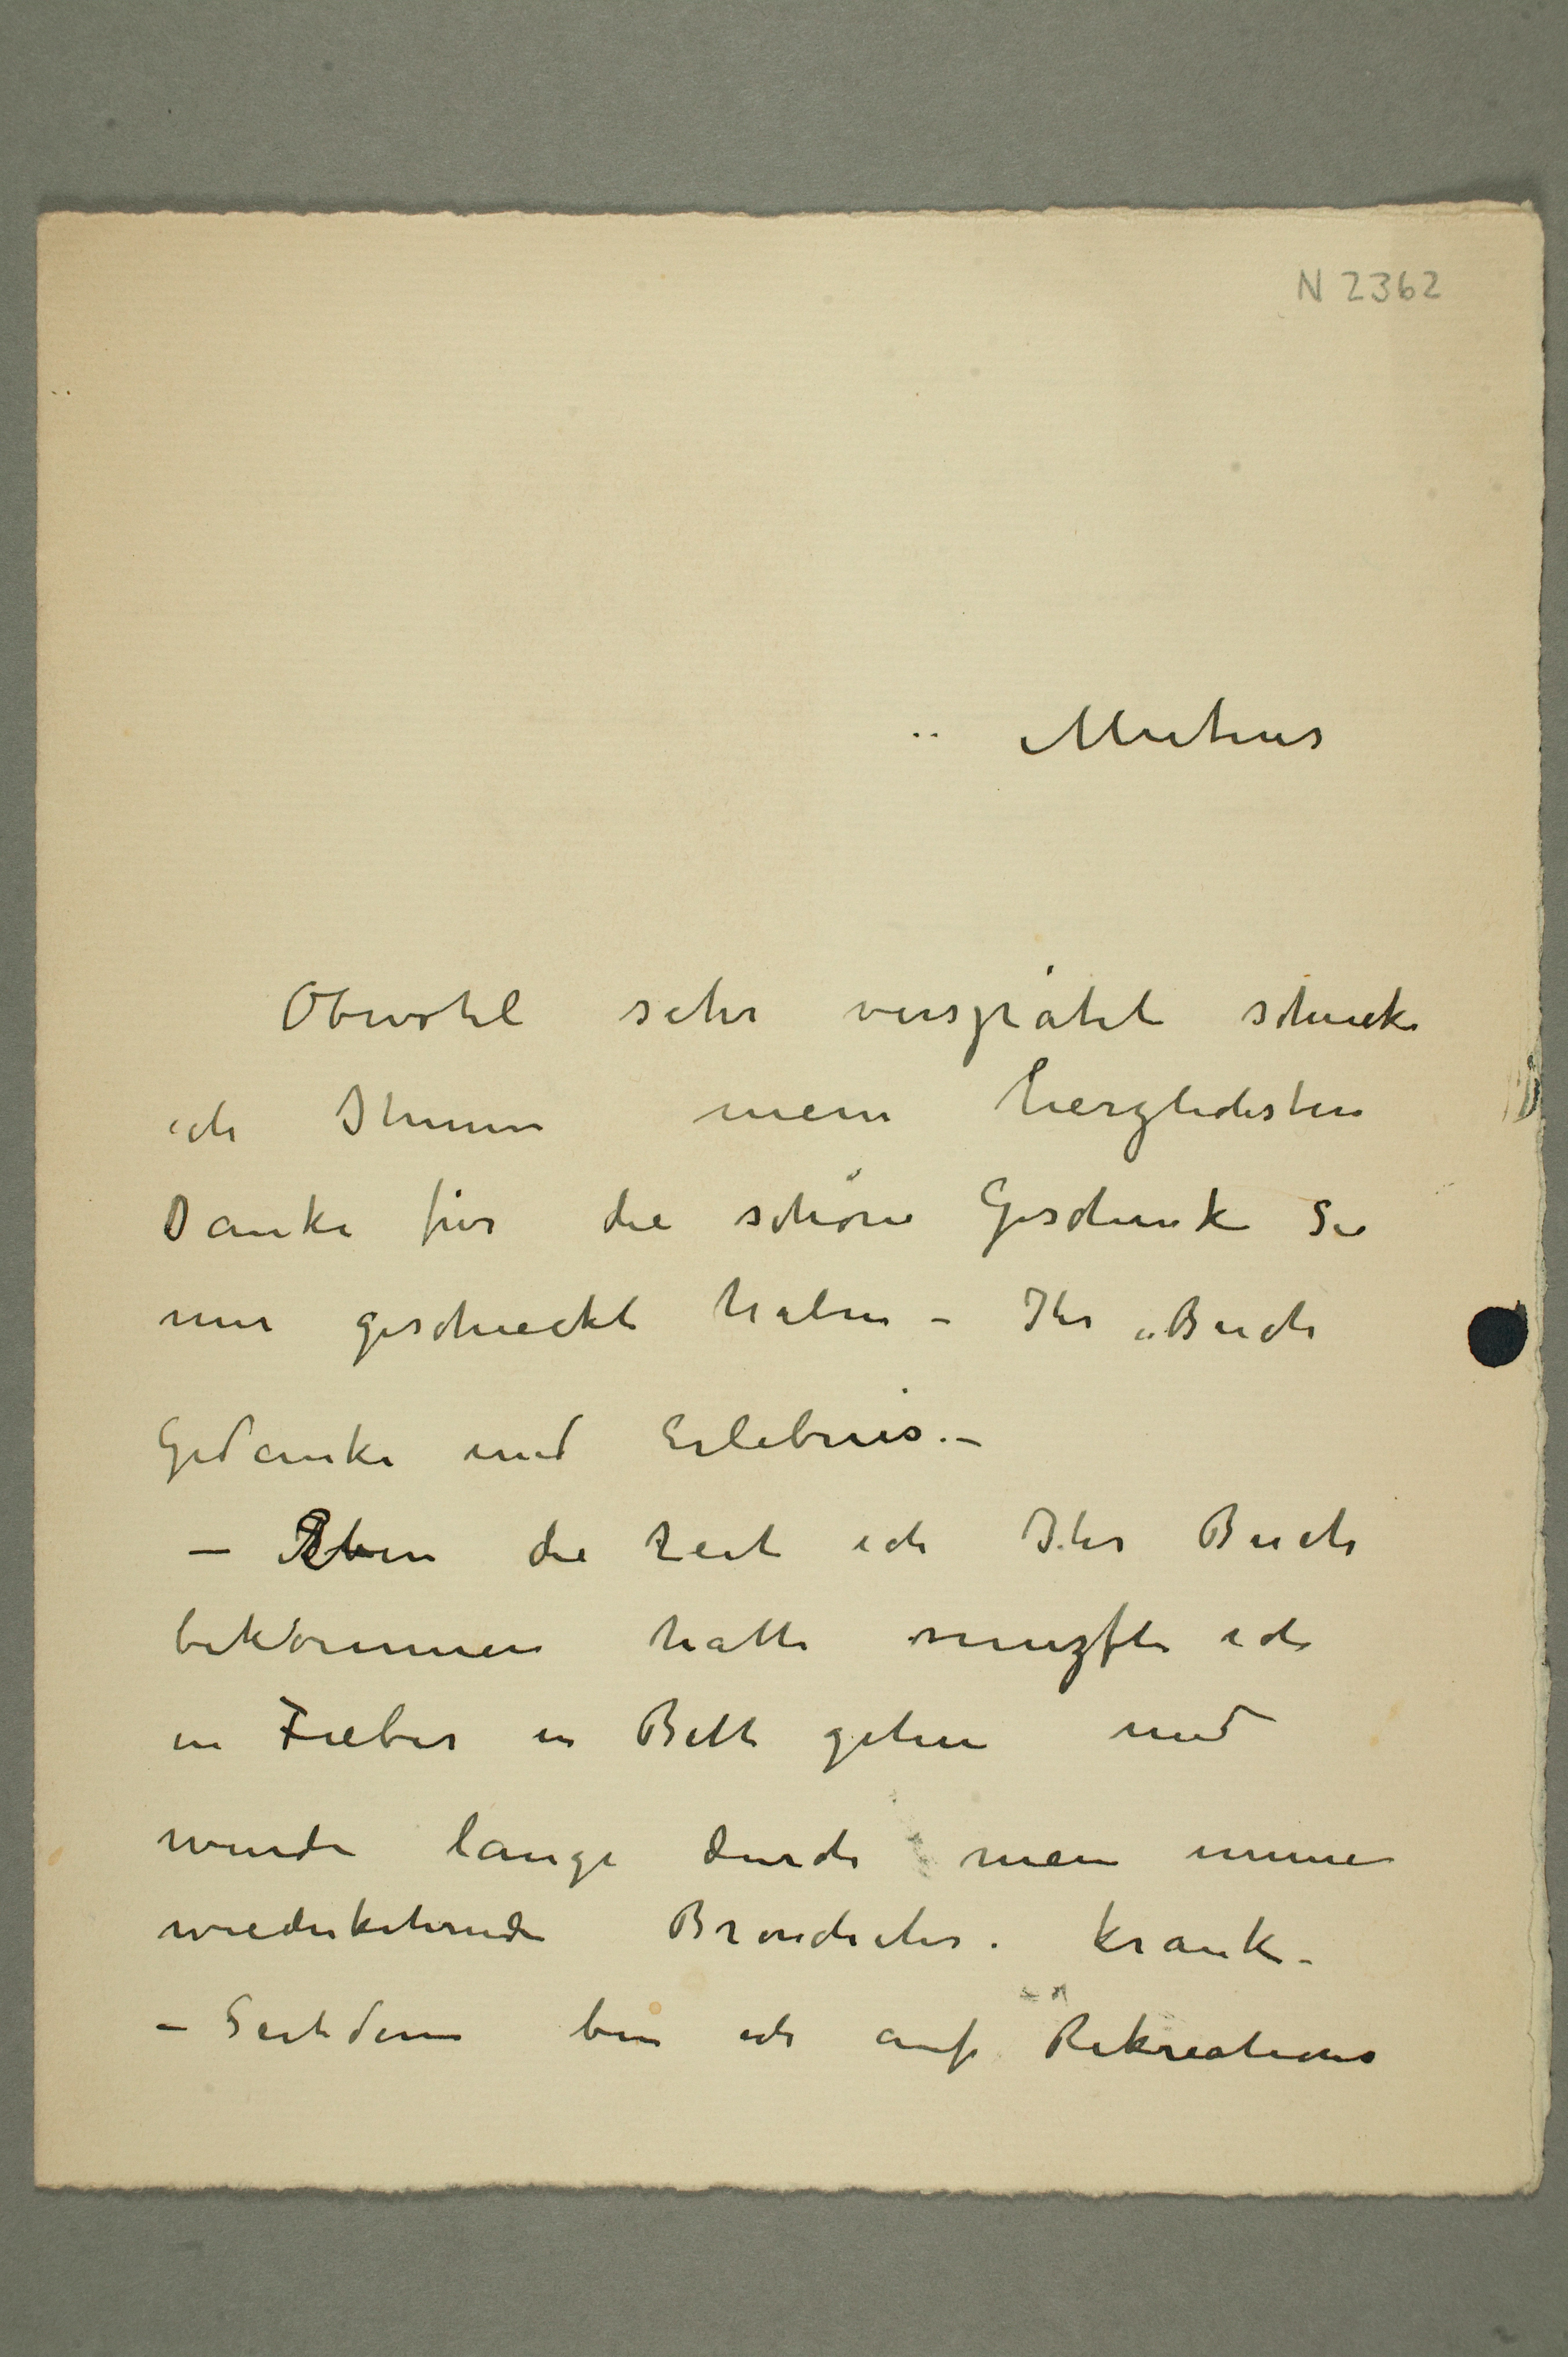 N 2362
Mutius
Obwohl sehr verspätet schicke
ich Ihnen mein herzlichsten
Danke für die schöne Geschenk Sie
mir geschieckt haben – Ihr „Buch
Gedanke und Erlebnis. –
– Eben die Zeit ich Ihr Buch
bekommen hatte muszte ich
in Fieber in Bett gehen und
wurde lange durch mein immer
wiederkehrende Bronchites. krank –
– Seitdem bin ich auf Rekreations